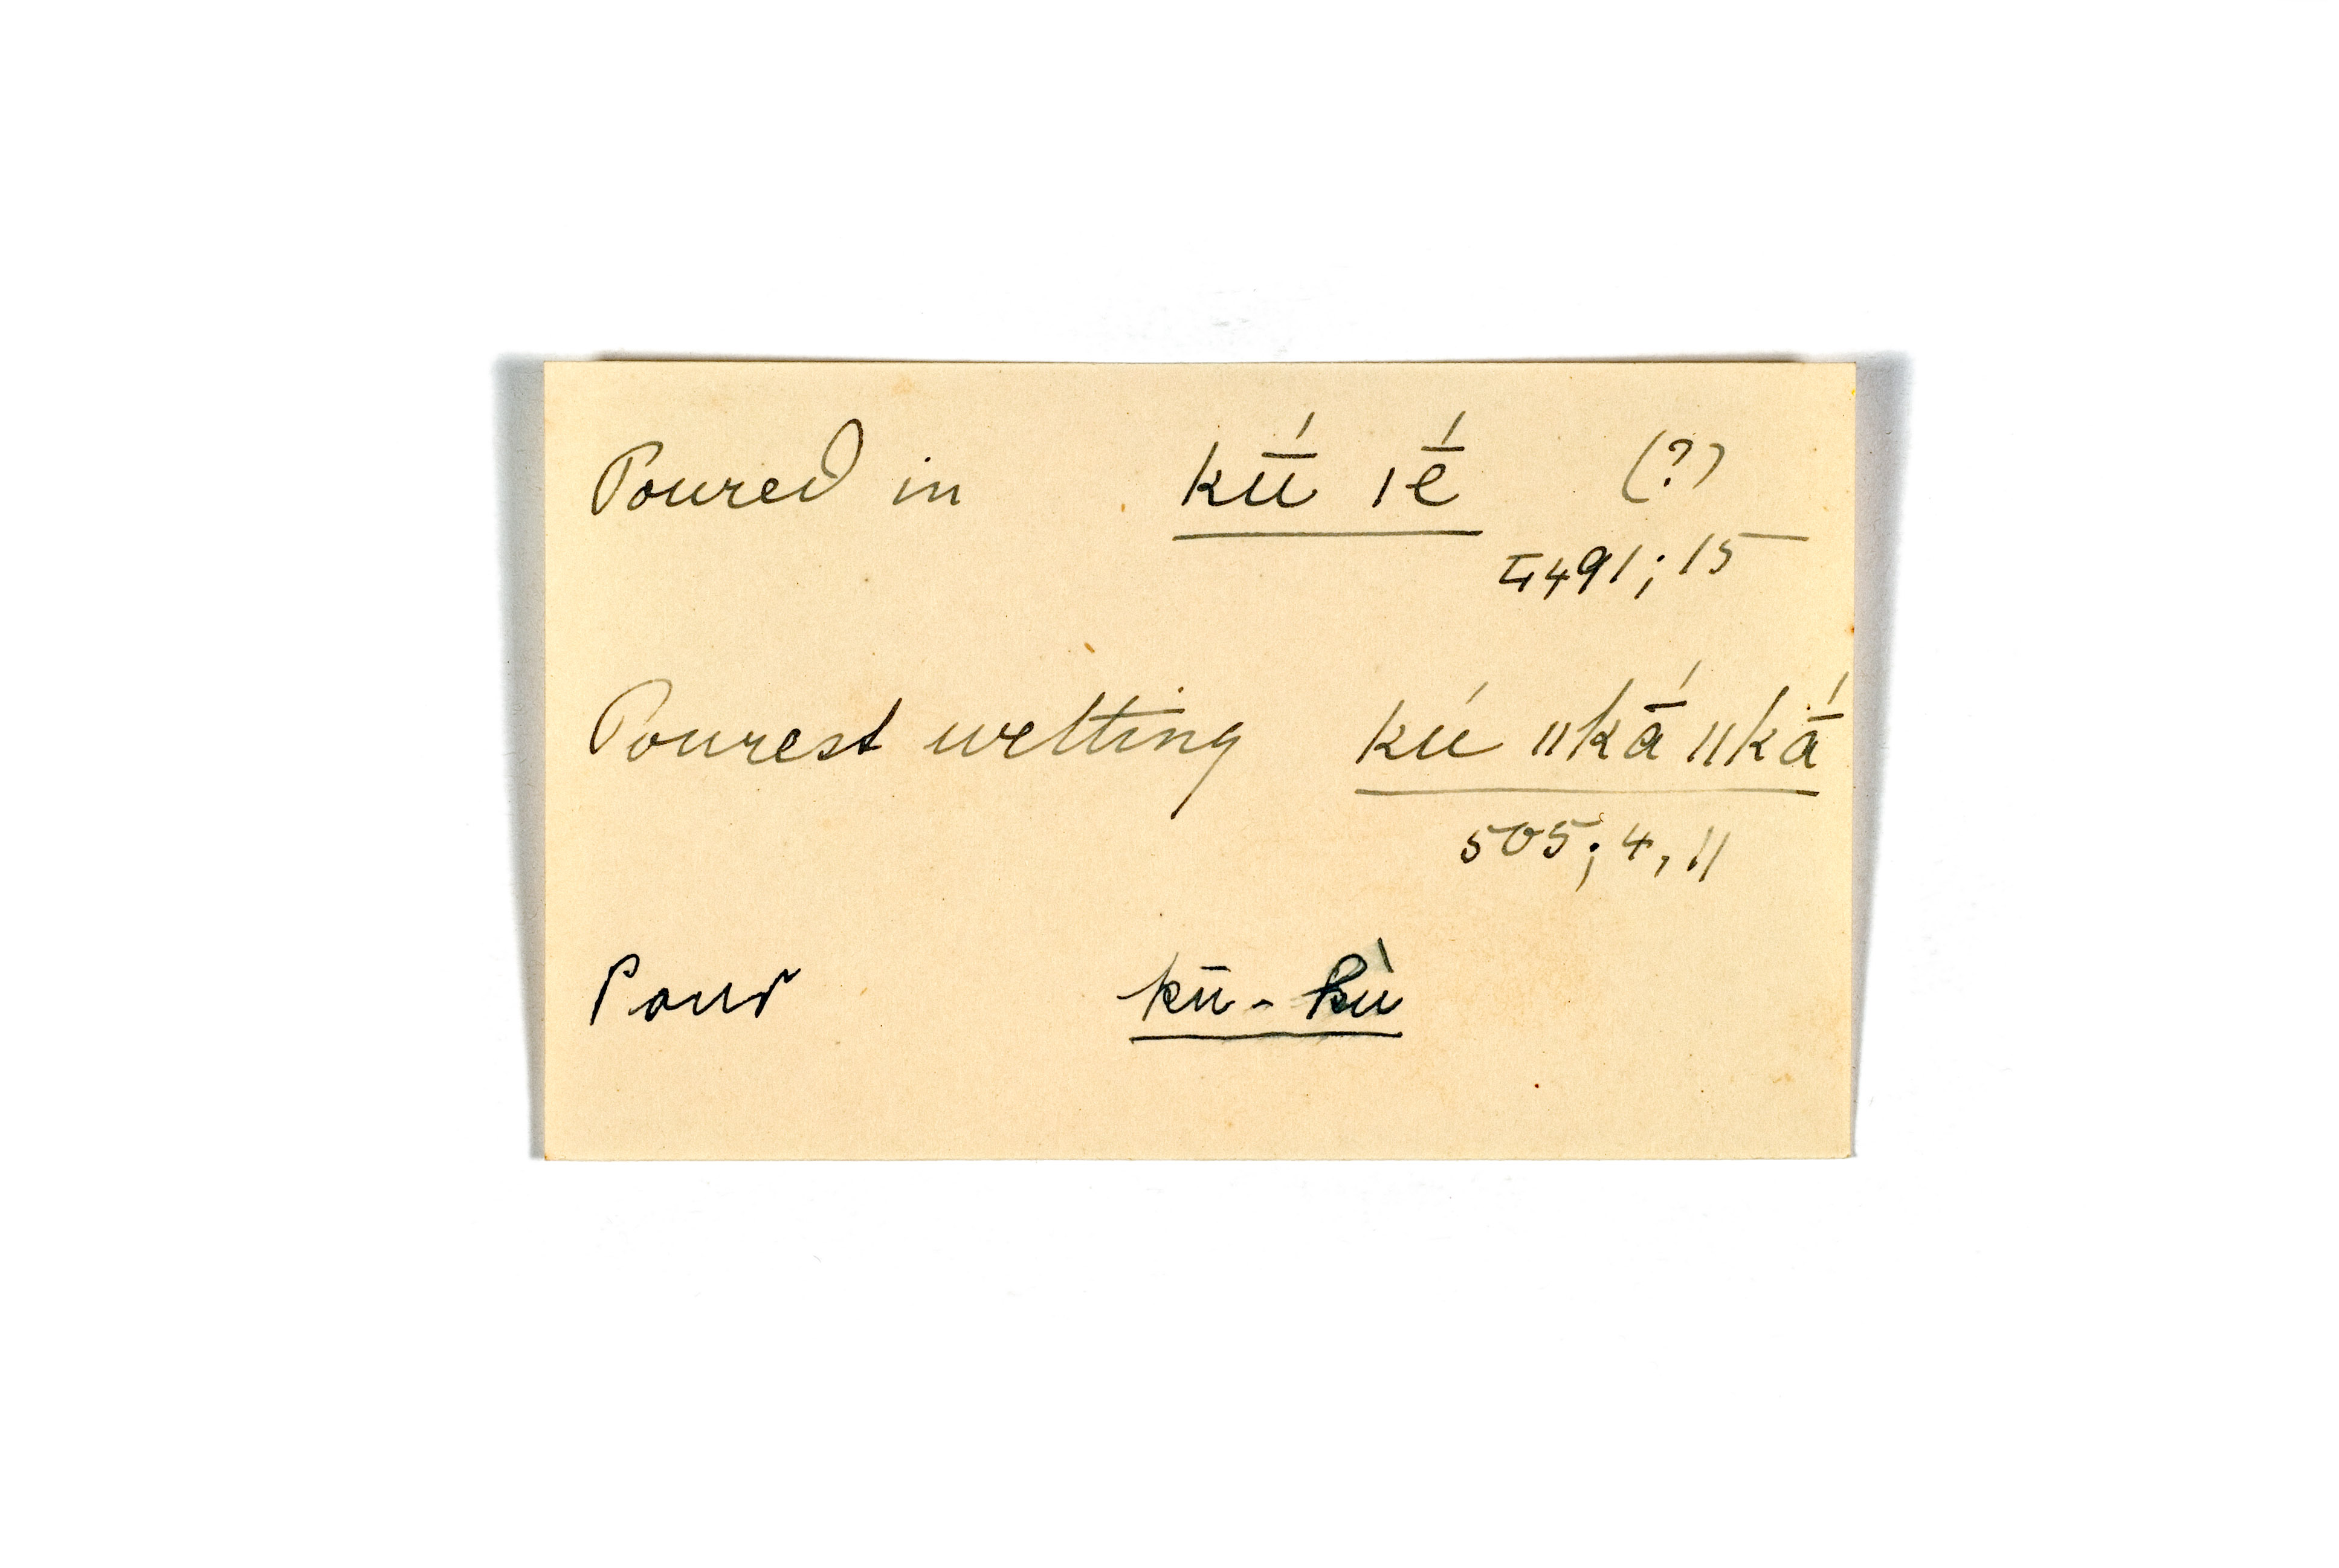 Poured in kū́ ǀḗ (?)
4491; 15
Pourest wetting kú ǁkā́ ǁkā́
505; 4, 11
Pour kū - kù